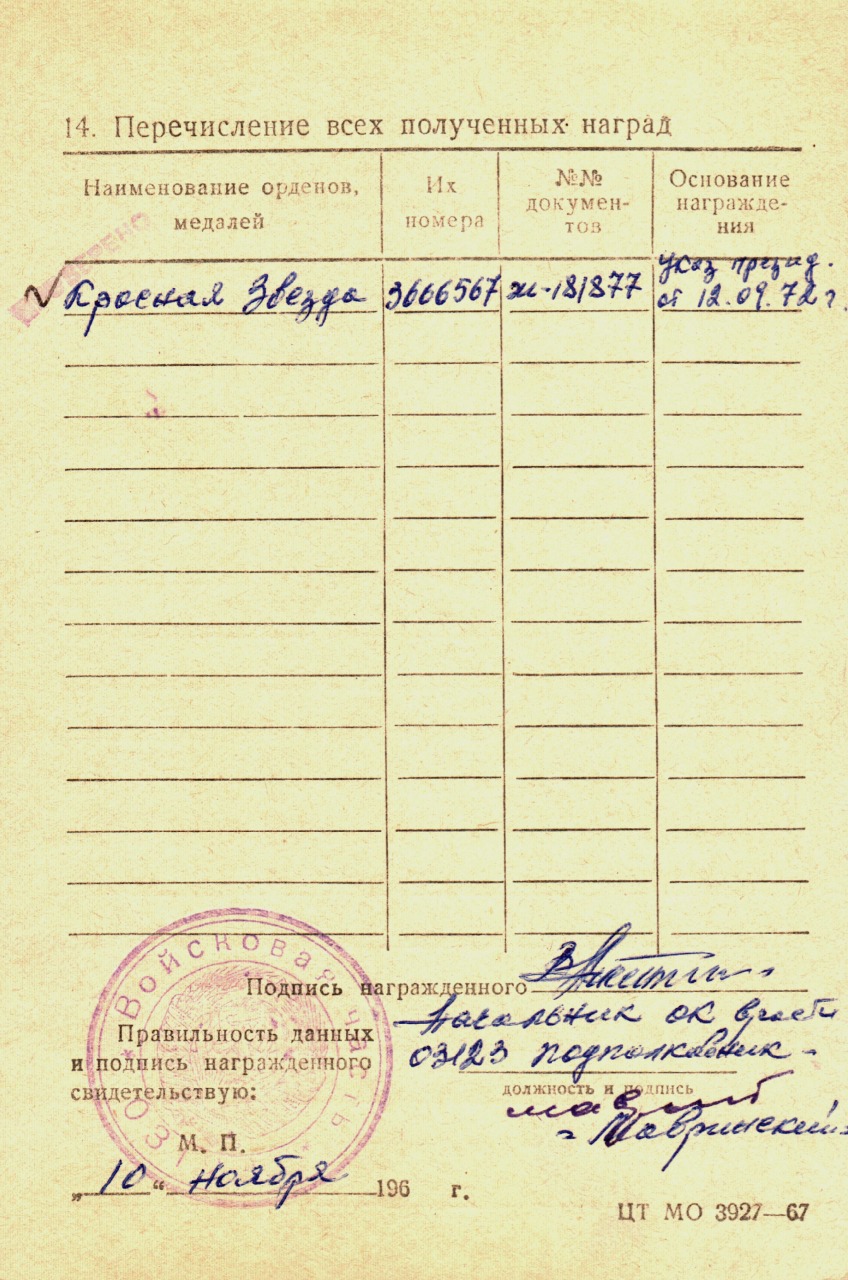 14. Перечисление всех полученных наград
Наименование орденов, медалей
Их номера
№№ докумен- тов
Основание награжде- ния
Красная Звезда 3606567 ж-181877 указ презид. от 12.09.72 г.
Подпись награжденного
Правильность данных
и подпись награжденного
свидетельствую:
Начальник ОК в/части
03123 подполковник -
должность и подпись
М. П.
„10“ ноября 196 г.
Войсковая часть
ЦТ МО 3927—67